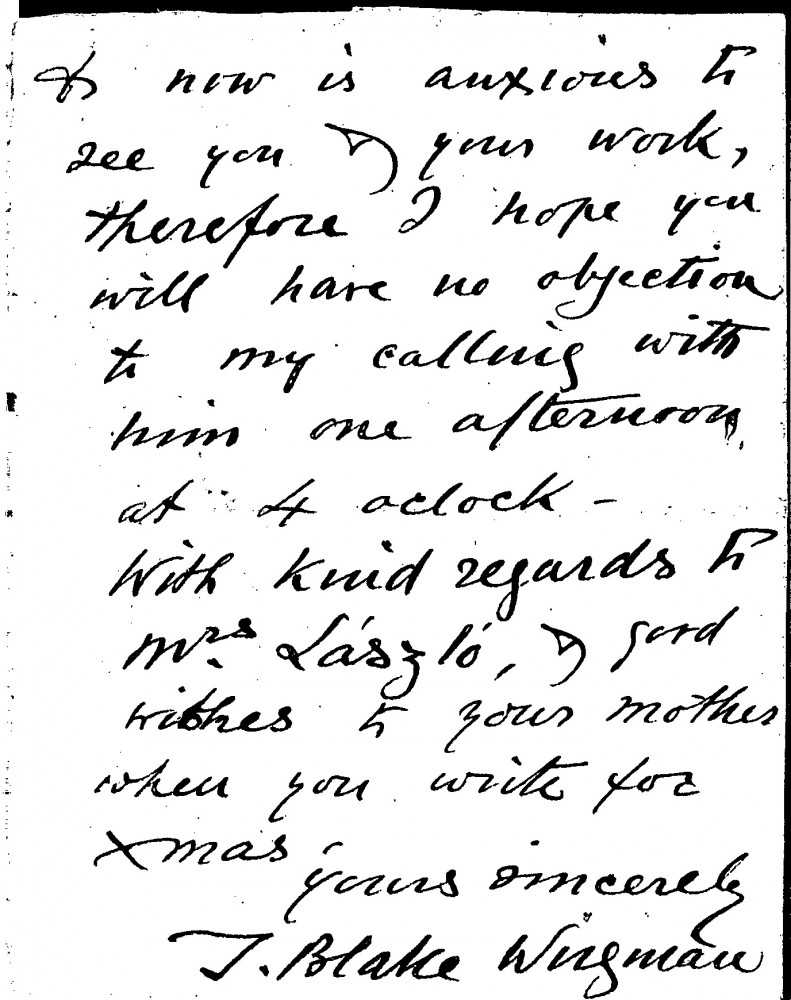 & now is anxious to
see you & your work,
therefore I hope you
will have no objection
to my calling with
him one afternoon,
at 4 oclock –
With kind regards to
Mrs. László, & good
wishes to your mother
when you write for
Xmas,
yours sincerely
T. Blake Wirgman